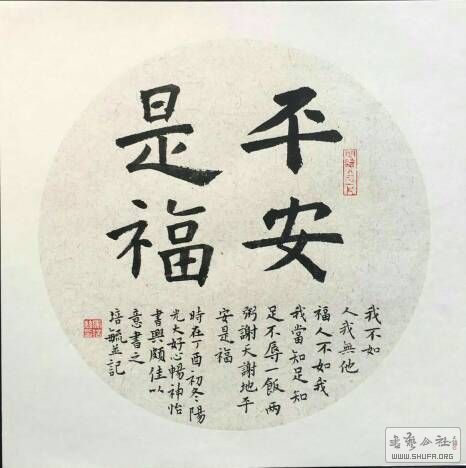 平安
是福
我不如
人我無他
福人不如我
我當知足知
足不辱一飯兩
粥謝天謝地平
安是福
時在丁酉初冬陽
光大好心暢神怡
書興頗佳以
意書之
培毓並記
公社
WWW.SHUFA.ORG